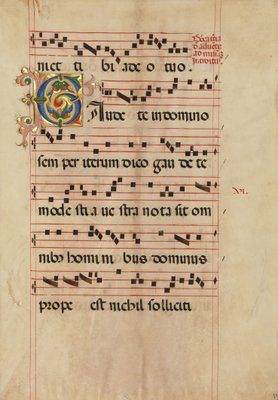 niet ti bi ade o tuo.
Gaude te in domino
sem per iterum dico gau de te
mode sti a ue stra nota sit om
nibus homini bus dominus
prope est nichil solliciti